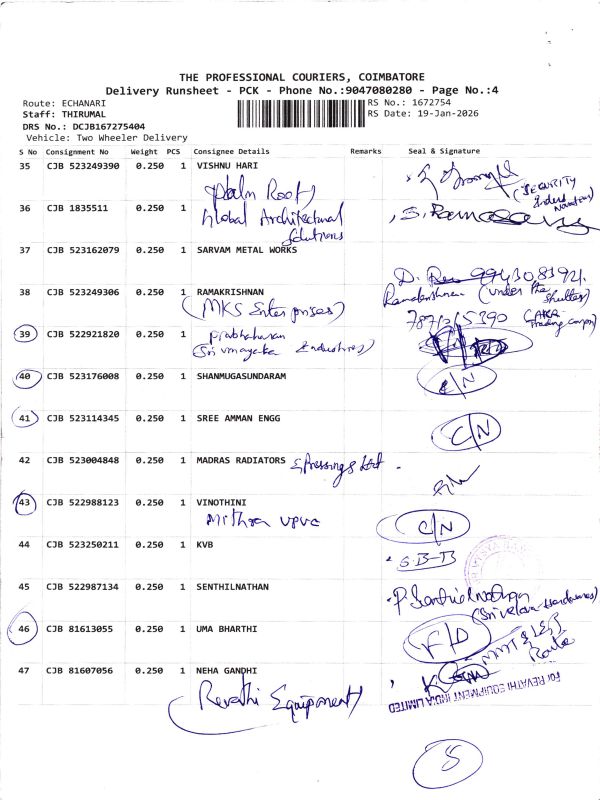 THE PROFESSIONAL COURIERS, COIMBATORE
Delivery Runsheet - PCK - Phone No.:9047080280 - Page No.:4
Route: ECHANARI RS No.: 1672754
Staff: THIRUMAL RS Date: 19-Jan-2026
DRS No.: DCJB167275404
Vehicle: Two Wheeler Delivery
S No Consignment No Weight PCS Consignee Details Remarks Seal & Signature
35 CJB 523249390 0.250 1 VISHNU HARI
Palm Roots (SECURITY
36 CJB 1835511 0.250 1 Global Architectural
Solutions
37 CJB 523162079 0.250 1 SARVAM METAL WORKS
38 CJB 523249306 0.250 1 RAMAKRISHNAN Ramakrishnan (under the shutter)
(MKS Enterprises)
39 CJB 522921820 0.250 1 Prabhakaran 7871215390
(Sri vinayaka Industries)
40 CJB 523176008 0.250 1 SHANMUGASUNDARAM C/N
41 CJB 523114345 0.250 1 SREE AMMAN ENGG C/N
42 CJB 523004848 0.250 1 MADRAS RADIATORS & Pressings Ltd
43 CJB 522988123 0.250 1 VINOTHINI C/N
Mithra UPVC
44 CJB 523250211 0.250 1 KVB
45 CJB 522987134 0.250 1 SENTHILNATHAN P. Senthilnathan
(Sri velan Hardwares)
46 CJB 81613055 0.250 1 UMA BHARTHI F/D
47 CJB 81607056 0.250 1 NEHA GANDHI
Revathi Equipment
For REVATHI EQUIPMENT INDIA LIMITED